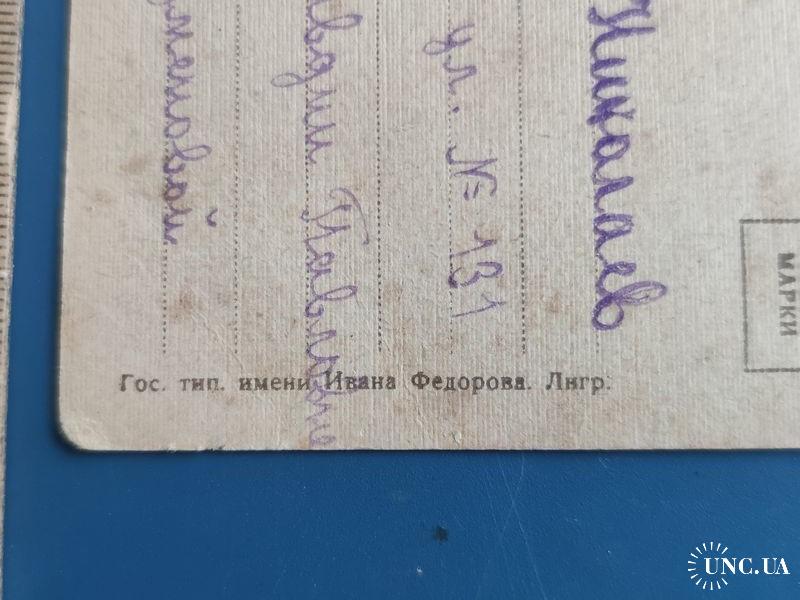 Николаев
ул. № 131
Павловне
МАРКИ
Гос. тип. имени Ивана Федорова. Лнгр.
UNC.UA